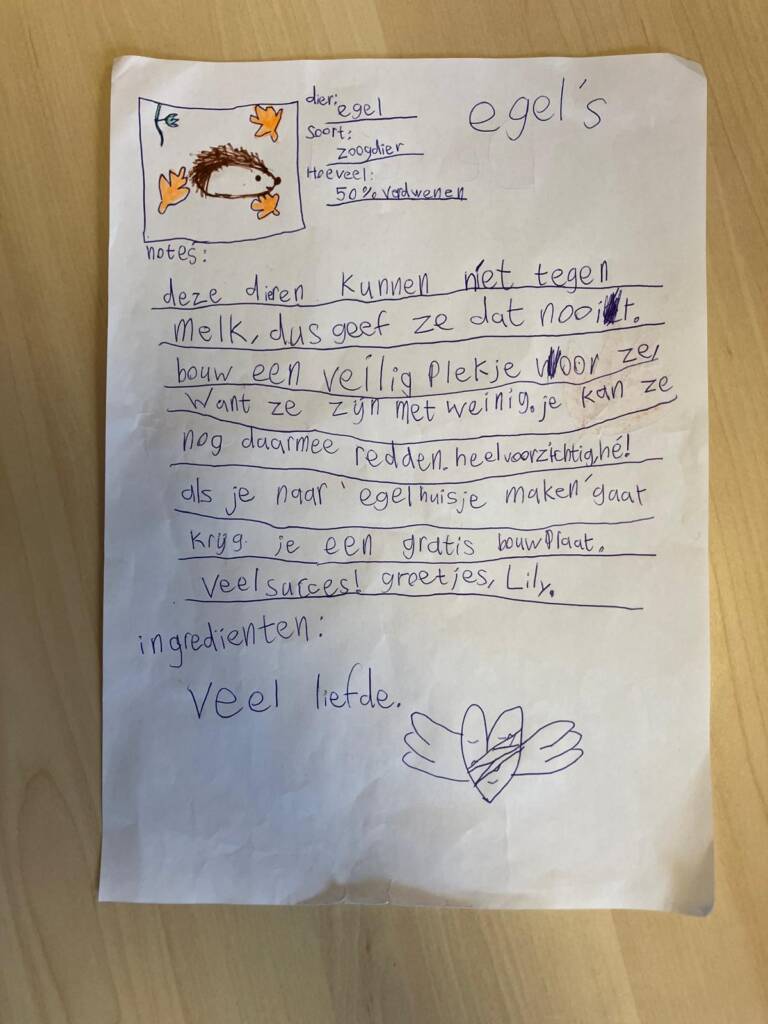 egel's
dier: egel
Soort:
zoogdier
Hoeveel:
50% verdwenen
notes:
deze dieren kunnen niet tegen
melk, dus geef ze dat nooit.
bouw een veilig plekje voor ze,
want ze zijn met weinig. je kan ze
nog daarmee redden. heel voorzichtig, hé!
als je naar 'egelhuisje maken' gaat
krijg je een gratis bouwplaat.
veel surces! greetjes, Lily.
ingredienten:
veel liefde.